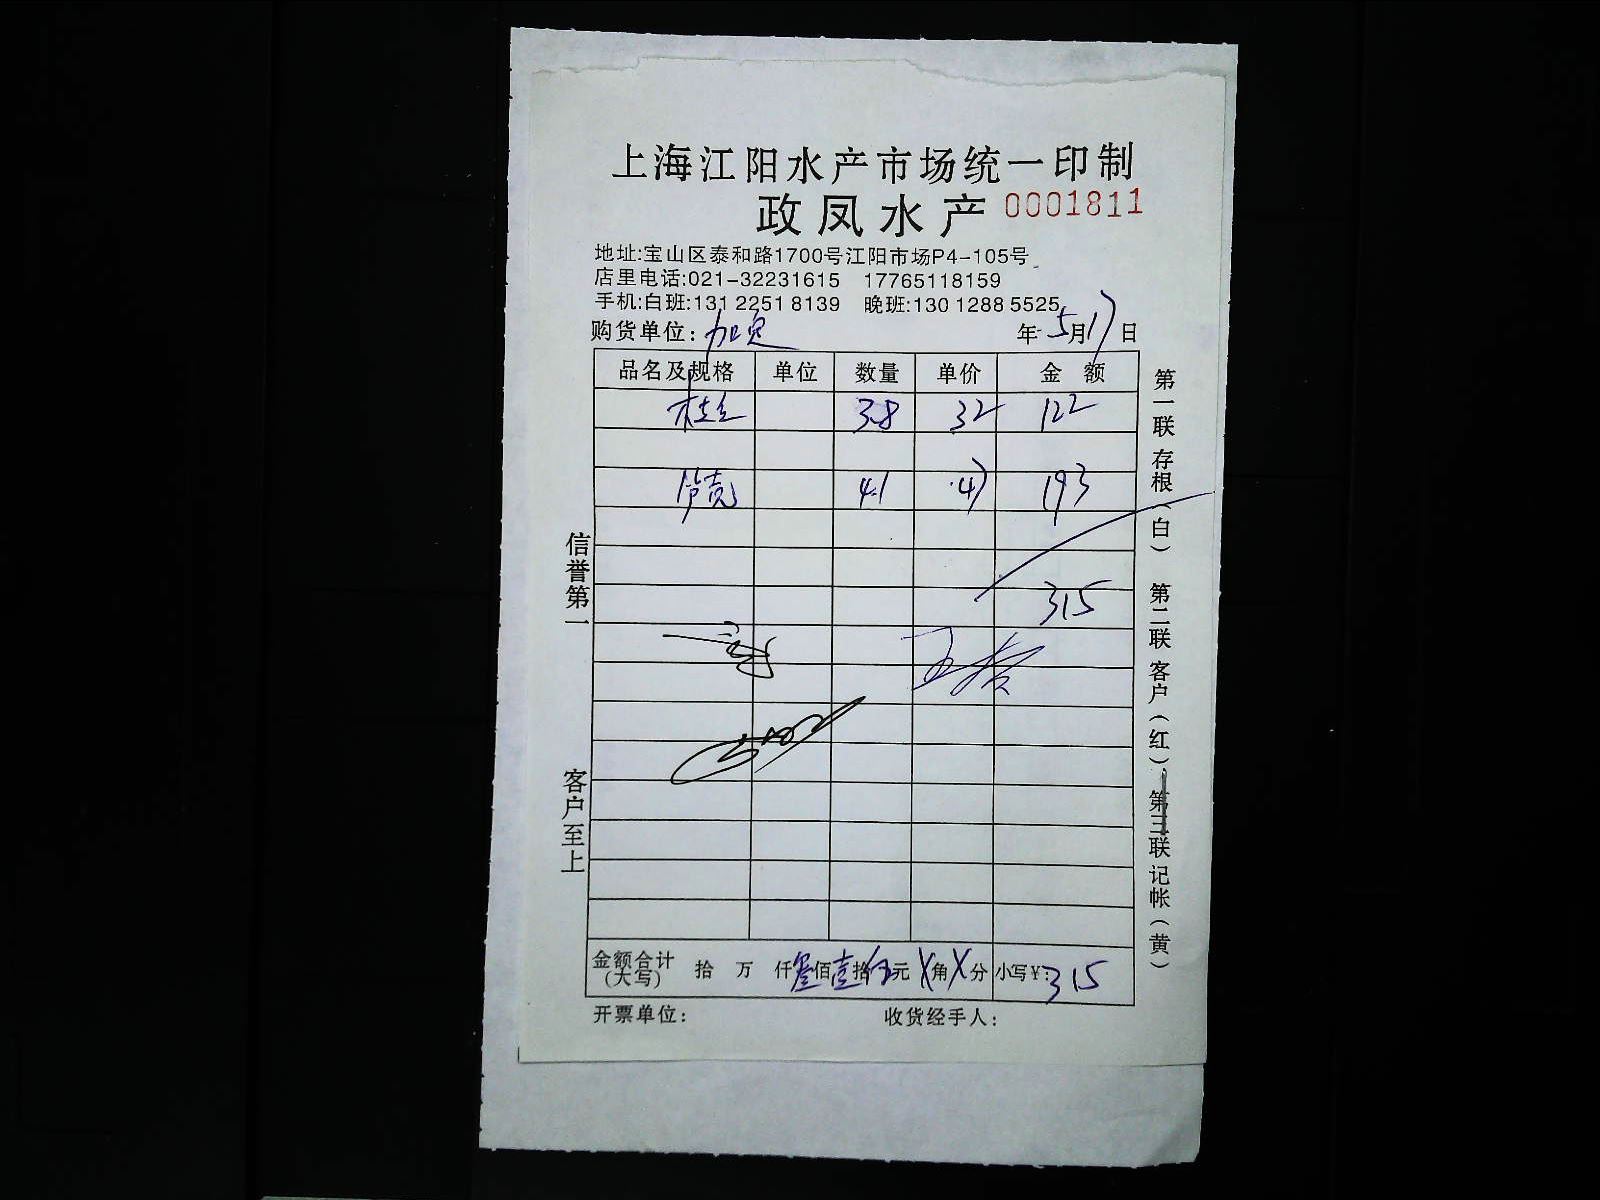 上海江阳水产市场统一印制
政凤水产 0001811
地址:宝山区泰和路1700号江阳市场P4-105号
店里电话:021-32231615 17765118159
手机:白班:131 2251 8139 晚班:130 1288 5525
购货单位: 年 5月17日
品名及规格 单位 数量 单价 金额
3.8 32 122
4.1 47 193
315
金额合计(大写) 拾 万 仟叁佰壹拾伍元X角X分 小写¥:315
开票单位: 收货经手人:
信誉第一
客户至上
第一联 存根(白) 第二联 客户(红) 第三联 记帐(黄)